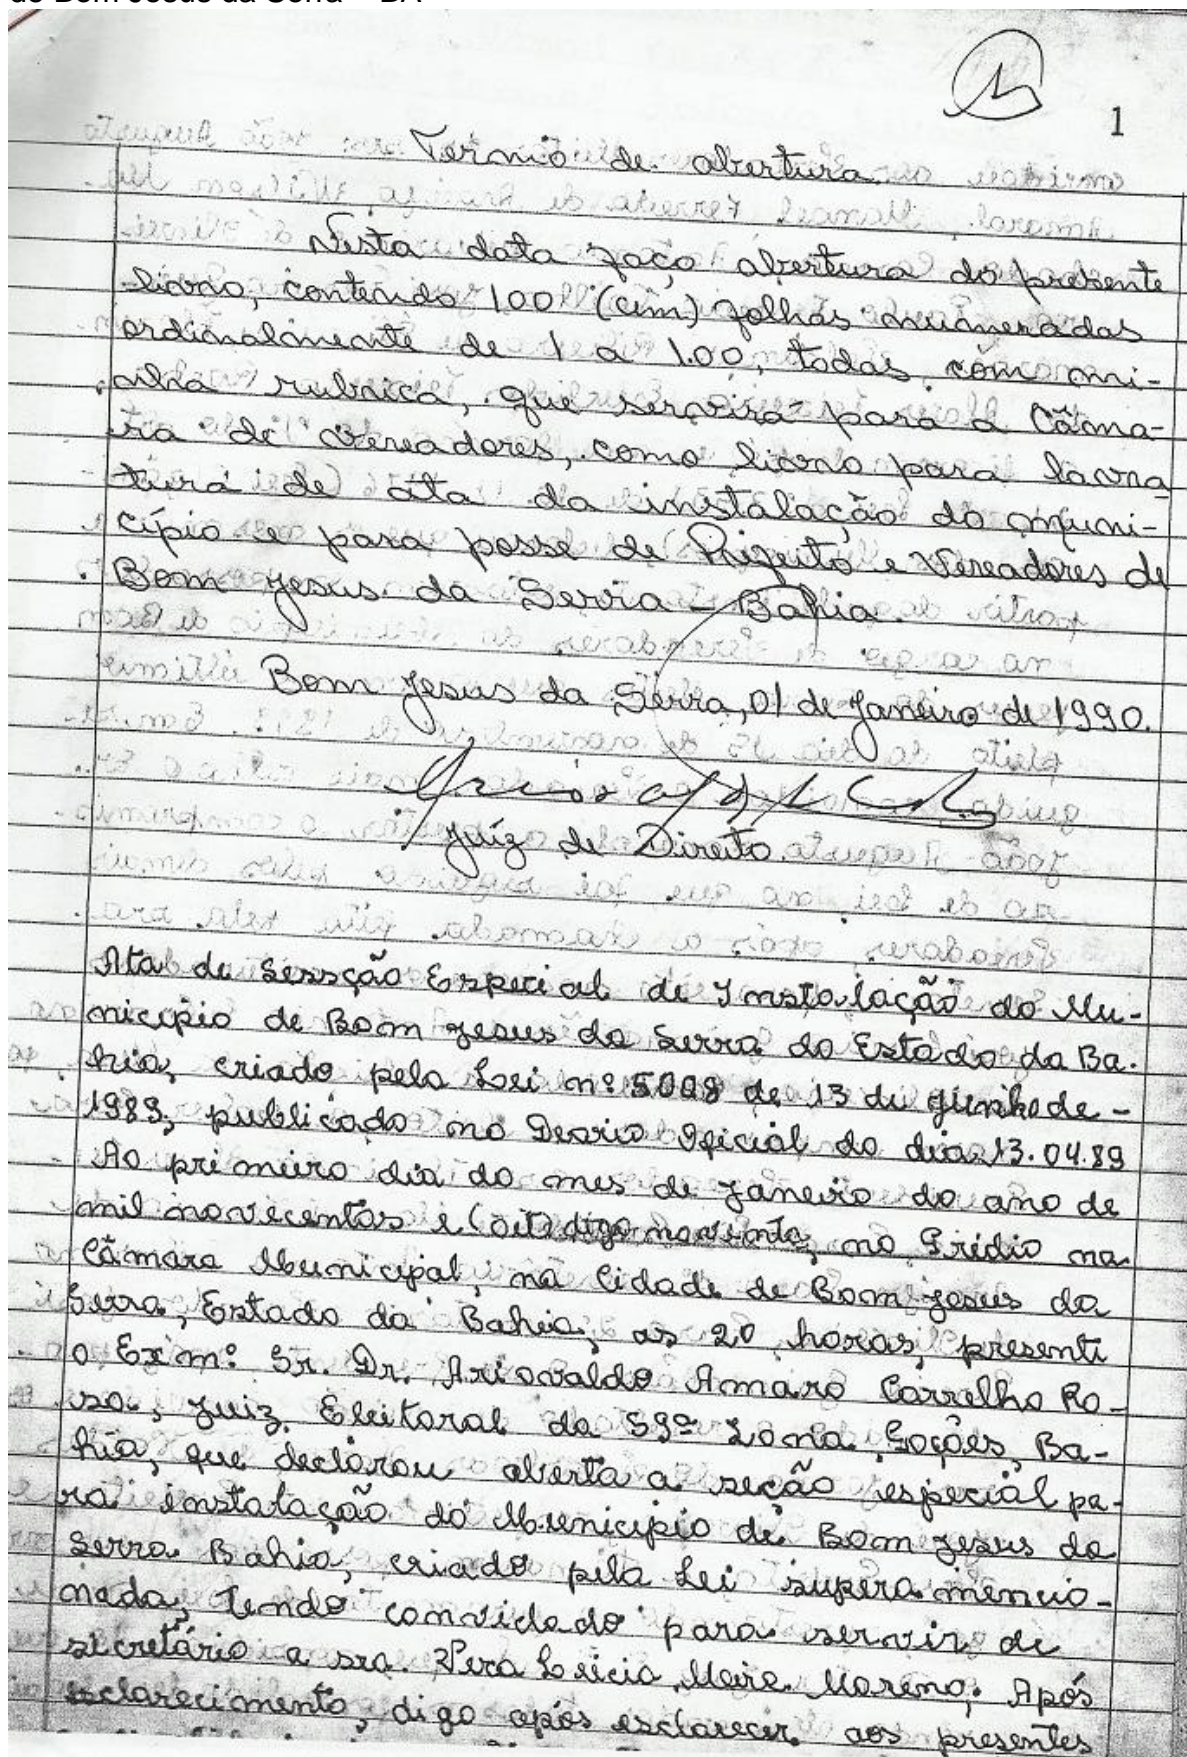 de Bom Jesus da Serra – BA
1
Termo de abertura
Nesta data faço abertura do presente
livro, contendo 100 (cem) folhas numeradas
ordinalmente de 1 a 100, todas com mi-
nha rubrica, que servirá para a Câma-
ra de Vereadores, como livro para lavra
tura de ata da instalação do muni-
cípio e para posse de Prefeito e Vereadores de
Bom Jesus da Serra - Bahia.
Bom Jesus da Serra, 01 de Janeiro de 1990.
Juíz de Direito
Ata de Sessção Especial de Instalação do Mu-
nicípio de Bom Jesus da Serra do Estado da Ba-
hia, criado pela Lei nº 5008 de 13 de de -
1989, publicado no Diario Oficial do dia 13.04.89
Ao primeiro dia do mes de Janeiro do ano de
mil novecentos e (oit) digo noventa, no Prédio na
Câmara Municipal, na Cidade de Bom Jesus da
Serra, Estado da Bahia, as 20 horas, presenti
o Exmº Sr. Dr. Ariosvaldo Amaro Carrelho Ro-
sa, Juiz Eleitoral da 59ª Zona Poções, Ba-
hia, que declarou aberta a seção especial pa-
ra instalação do Municipio de Bom Jesus da
Serra Bahia, criado pela Lei supera mencio-
nada, Tendo convidado para servir de
secretário a sra. Vera Lúcia Meira Moreno; Após
esclarecimento, digo após esclarecer aos presentes